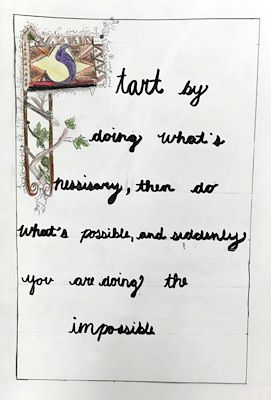 Start by
doing what's
nessisary, then do
what's possible, and suddenly
you are doing the
impossible